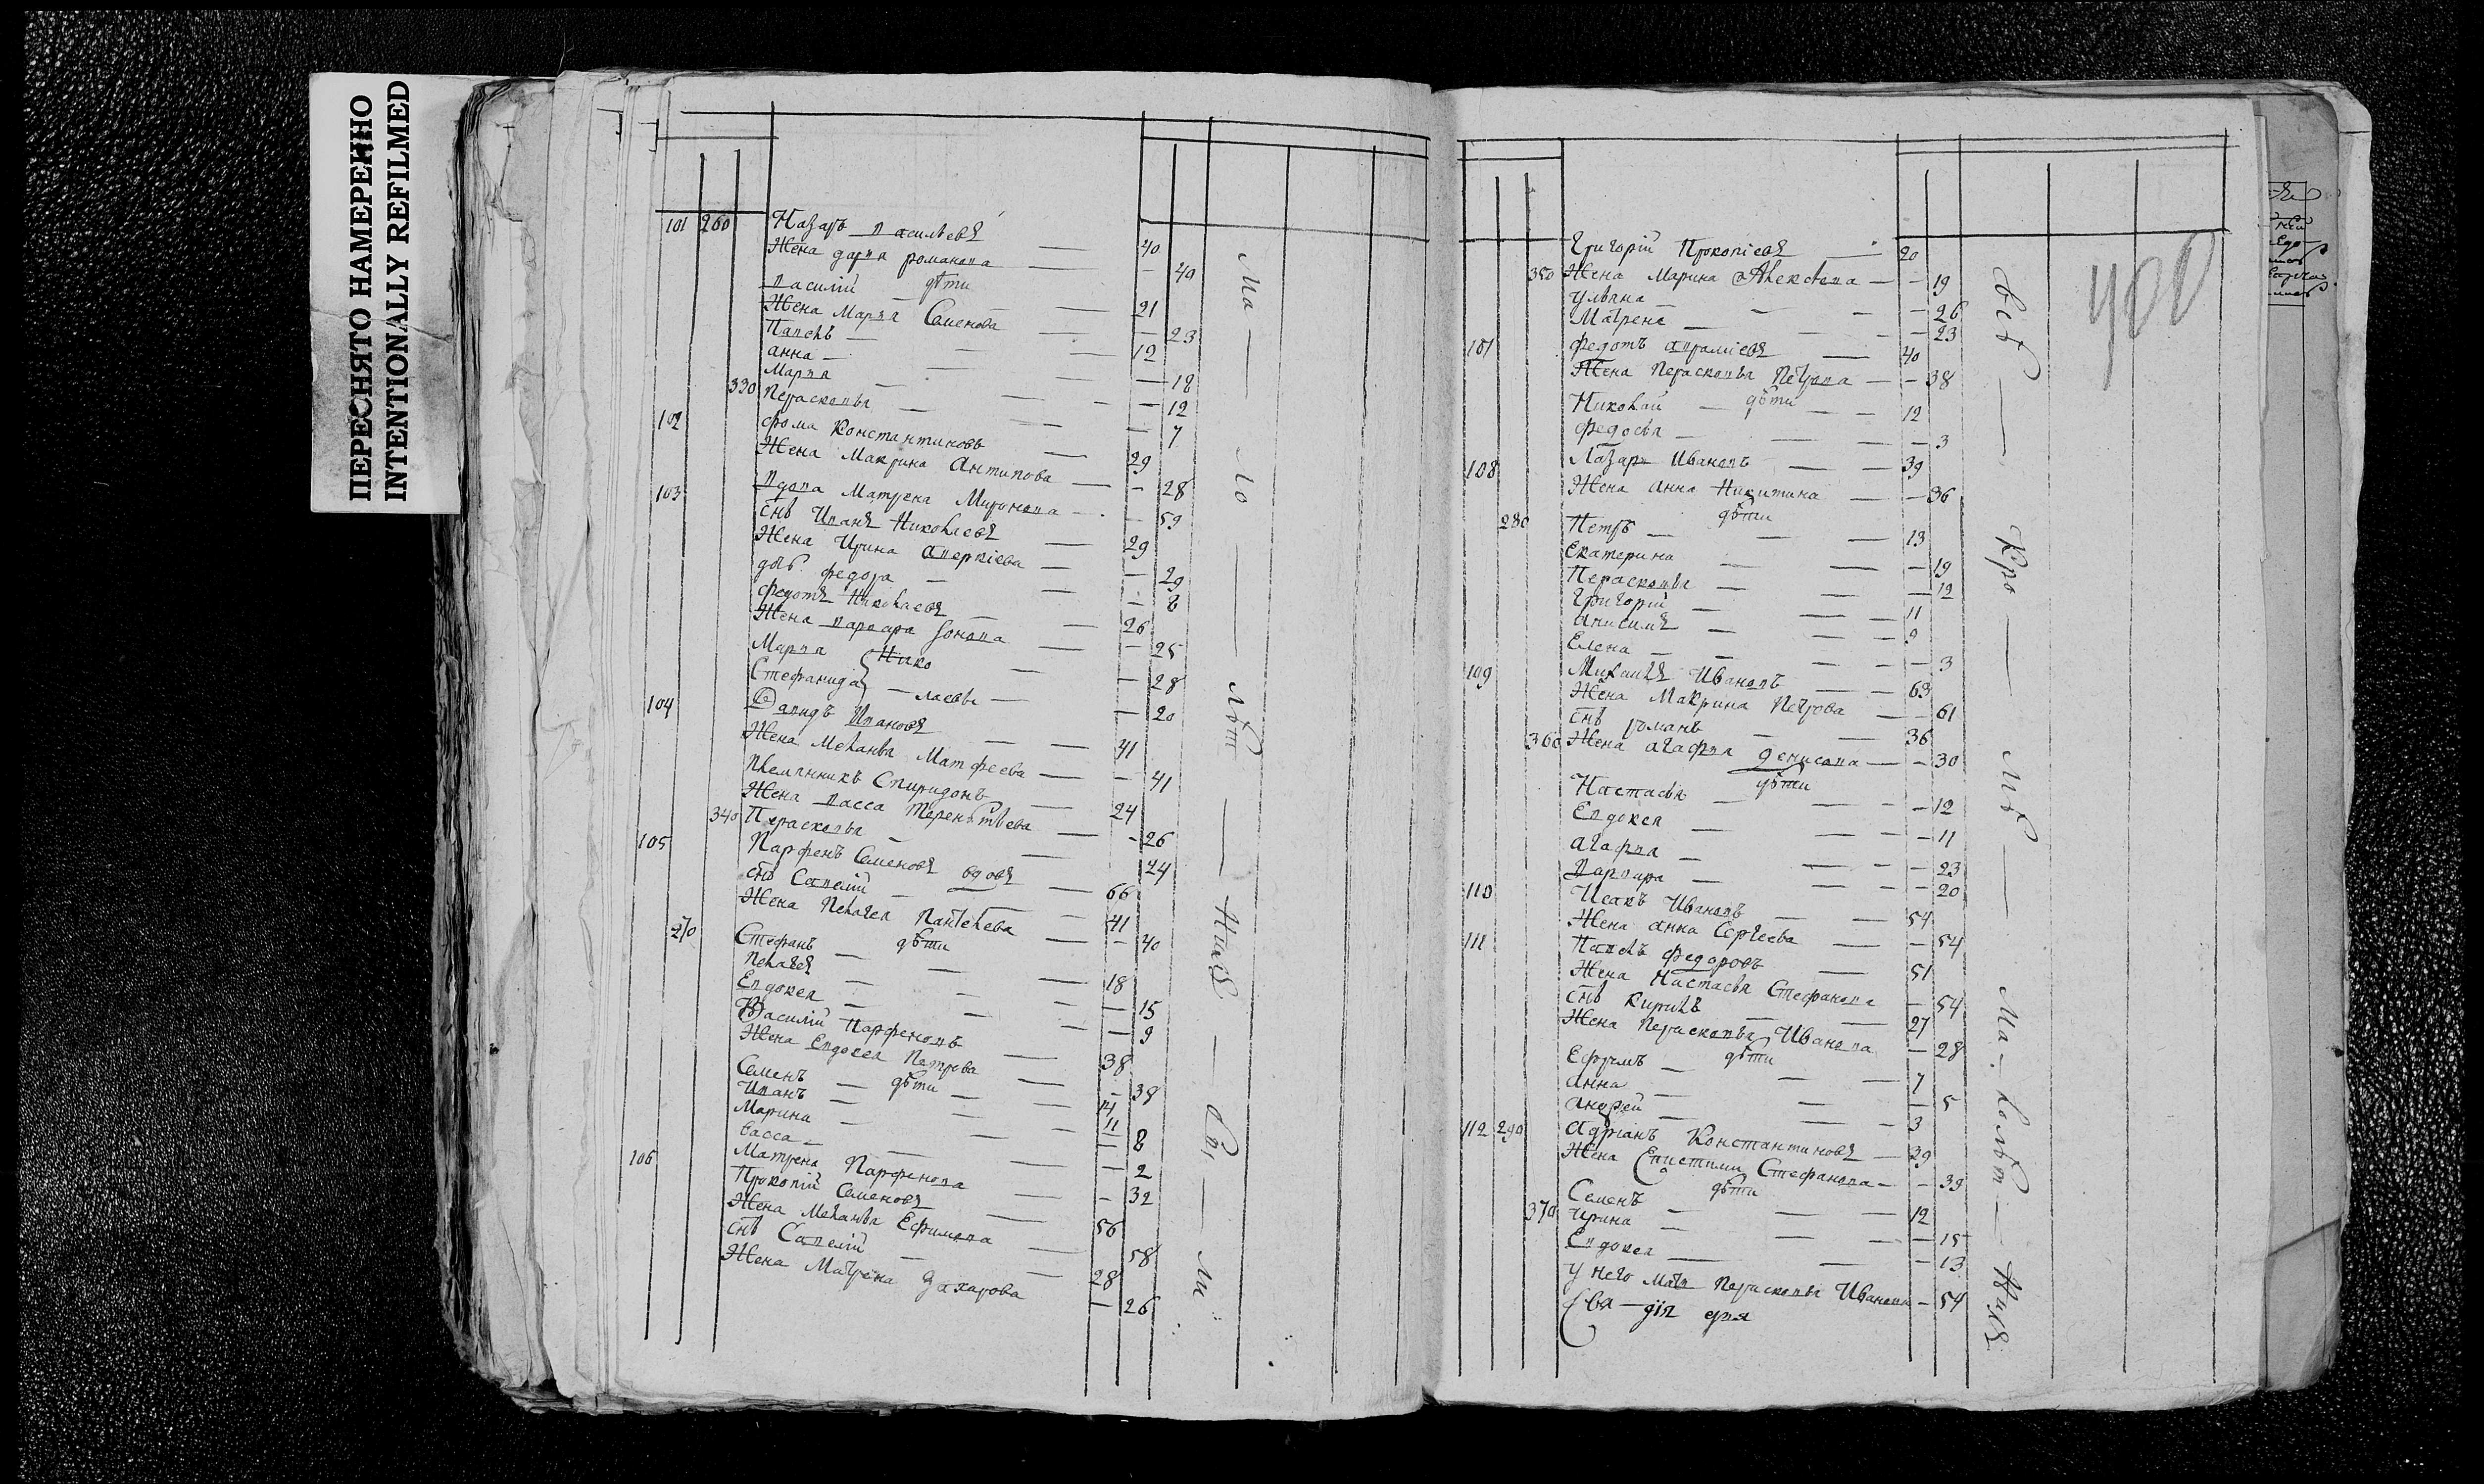 ПЕРЕСНЯТО НАМЕРЕННО
INTENTIONALLY REFILMED
101 260 Назаръ Васильевъ — 40
Жена дарва романова — — 40
дѣти
василий — 21
Жена Марва Семенова — — 23
Павелъ — 12
анна — — 18
Марва — — 12
330 Перасковья — — 7
102 фома Константиновъ — 29
Жена Макрина Антипова — — 28
103 вдова Матрена Миронова — — 59
снъ Иванъ Николаевъ — 29
Жена Ирина аверкіева — — 29
федора — — 8
федотъ Николаевъ — 26
Жена варвара — — 25
Марва } Нико — — 28
Стефанида } — лаевы — — 20
104 Давидъ Ивановъ — 41
Жена Меланья Матфеева — — 41
племянникъ Спиридонъ — 24
Жена васса Терентьева — — 26
340 Перасковья — — 24
105 Парфенъ Семеновъ вдовъ — 66
снъ Савелий — 41
Жена Пелагея Пантелева — — 40
дѣти
270 Стефанъ — 18
Пелагея — — 15
Евдокея — — 9
Василий Парфеновъ — 38
Жена Евдокея Петрова — — 38
дѣти
Семенъ — 14
Иванъ — 11
Марина — — 8
васса — — 2
Матрена Парфенова — — 32
106 Прокопий Семеновъ — 56
Жена Меланья Ефимова — — 58
снъ Савелий — 28
Жена Матрена Захарова — — 26
Ма — ло — лѣт — нихъ
Григорій Прокопіевъ — 20
350 Жена Марина Алексеева — — 19
Ульяна — — 26
Матрена — — 23
107 федотъ — 40
Жена Перасковья Петрова — — 38
дѣти
Николай — 12
федосья — — 3
108 Лазарь Ивановъ — 39
Жена анна Никитина — — 36
дѣти
280 Петръ — 13
Екатерина — — 19
Перасковья — — 12
Григорій — 11
анисимъ — 9
Елена — — 3
109 Михаилъ Ивановъ — 63
Жена Макрина Петрова — — 61
снъ романъ — 36
360 Жена агафья денисова — — 30
дѣти
Настасья — — 12
Евдокея — — 11
агафья — — 23
варвара — — 20
110 Исакъ Ивановъ — 54
Жена анна Сергеева — — 54
111 Павелъ федоровъ — 51
Жена Настасья Стефанова — — 54
снъ Кирилъ — 27
Жена Перасковья Иванова — — 28
дѣти
Ефремъ — 7
анна — — 5
андрей — 3
112 290 адріанъ Константиновъ — 39
Жена Епистимия Стефанова — — 39
дѣти
Семенъ — 12
370 Ирина — — 15
Евдокея — — 13
у него мать Перасковья Иванова — 54
вѣ — Кро — мѣ — Ма — лолѣт — нихъ
400